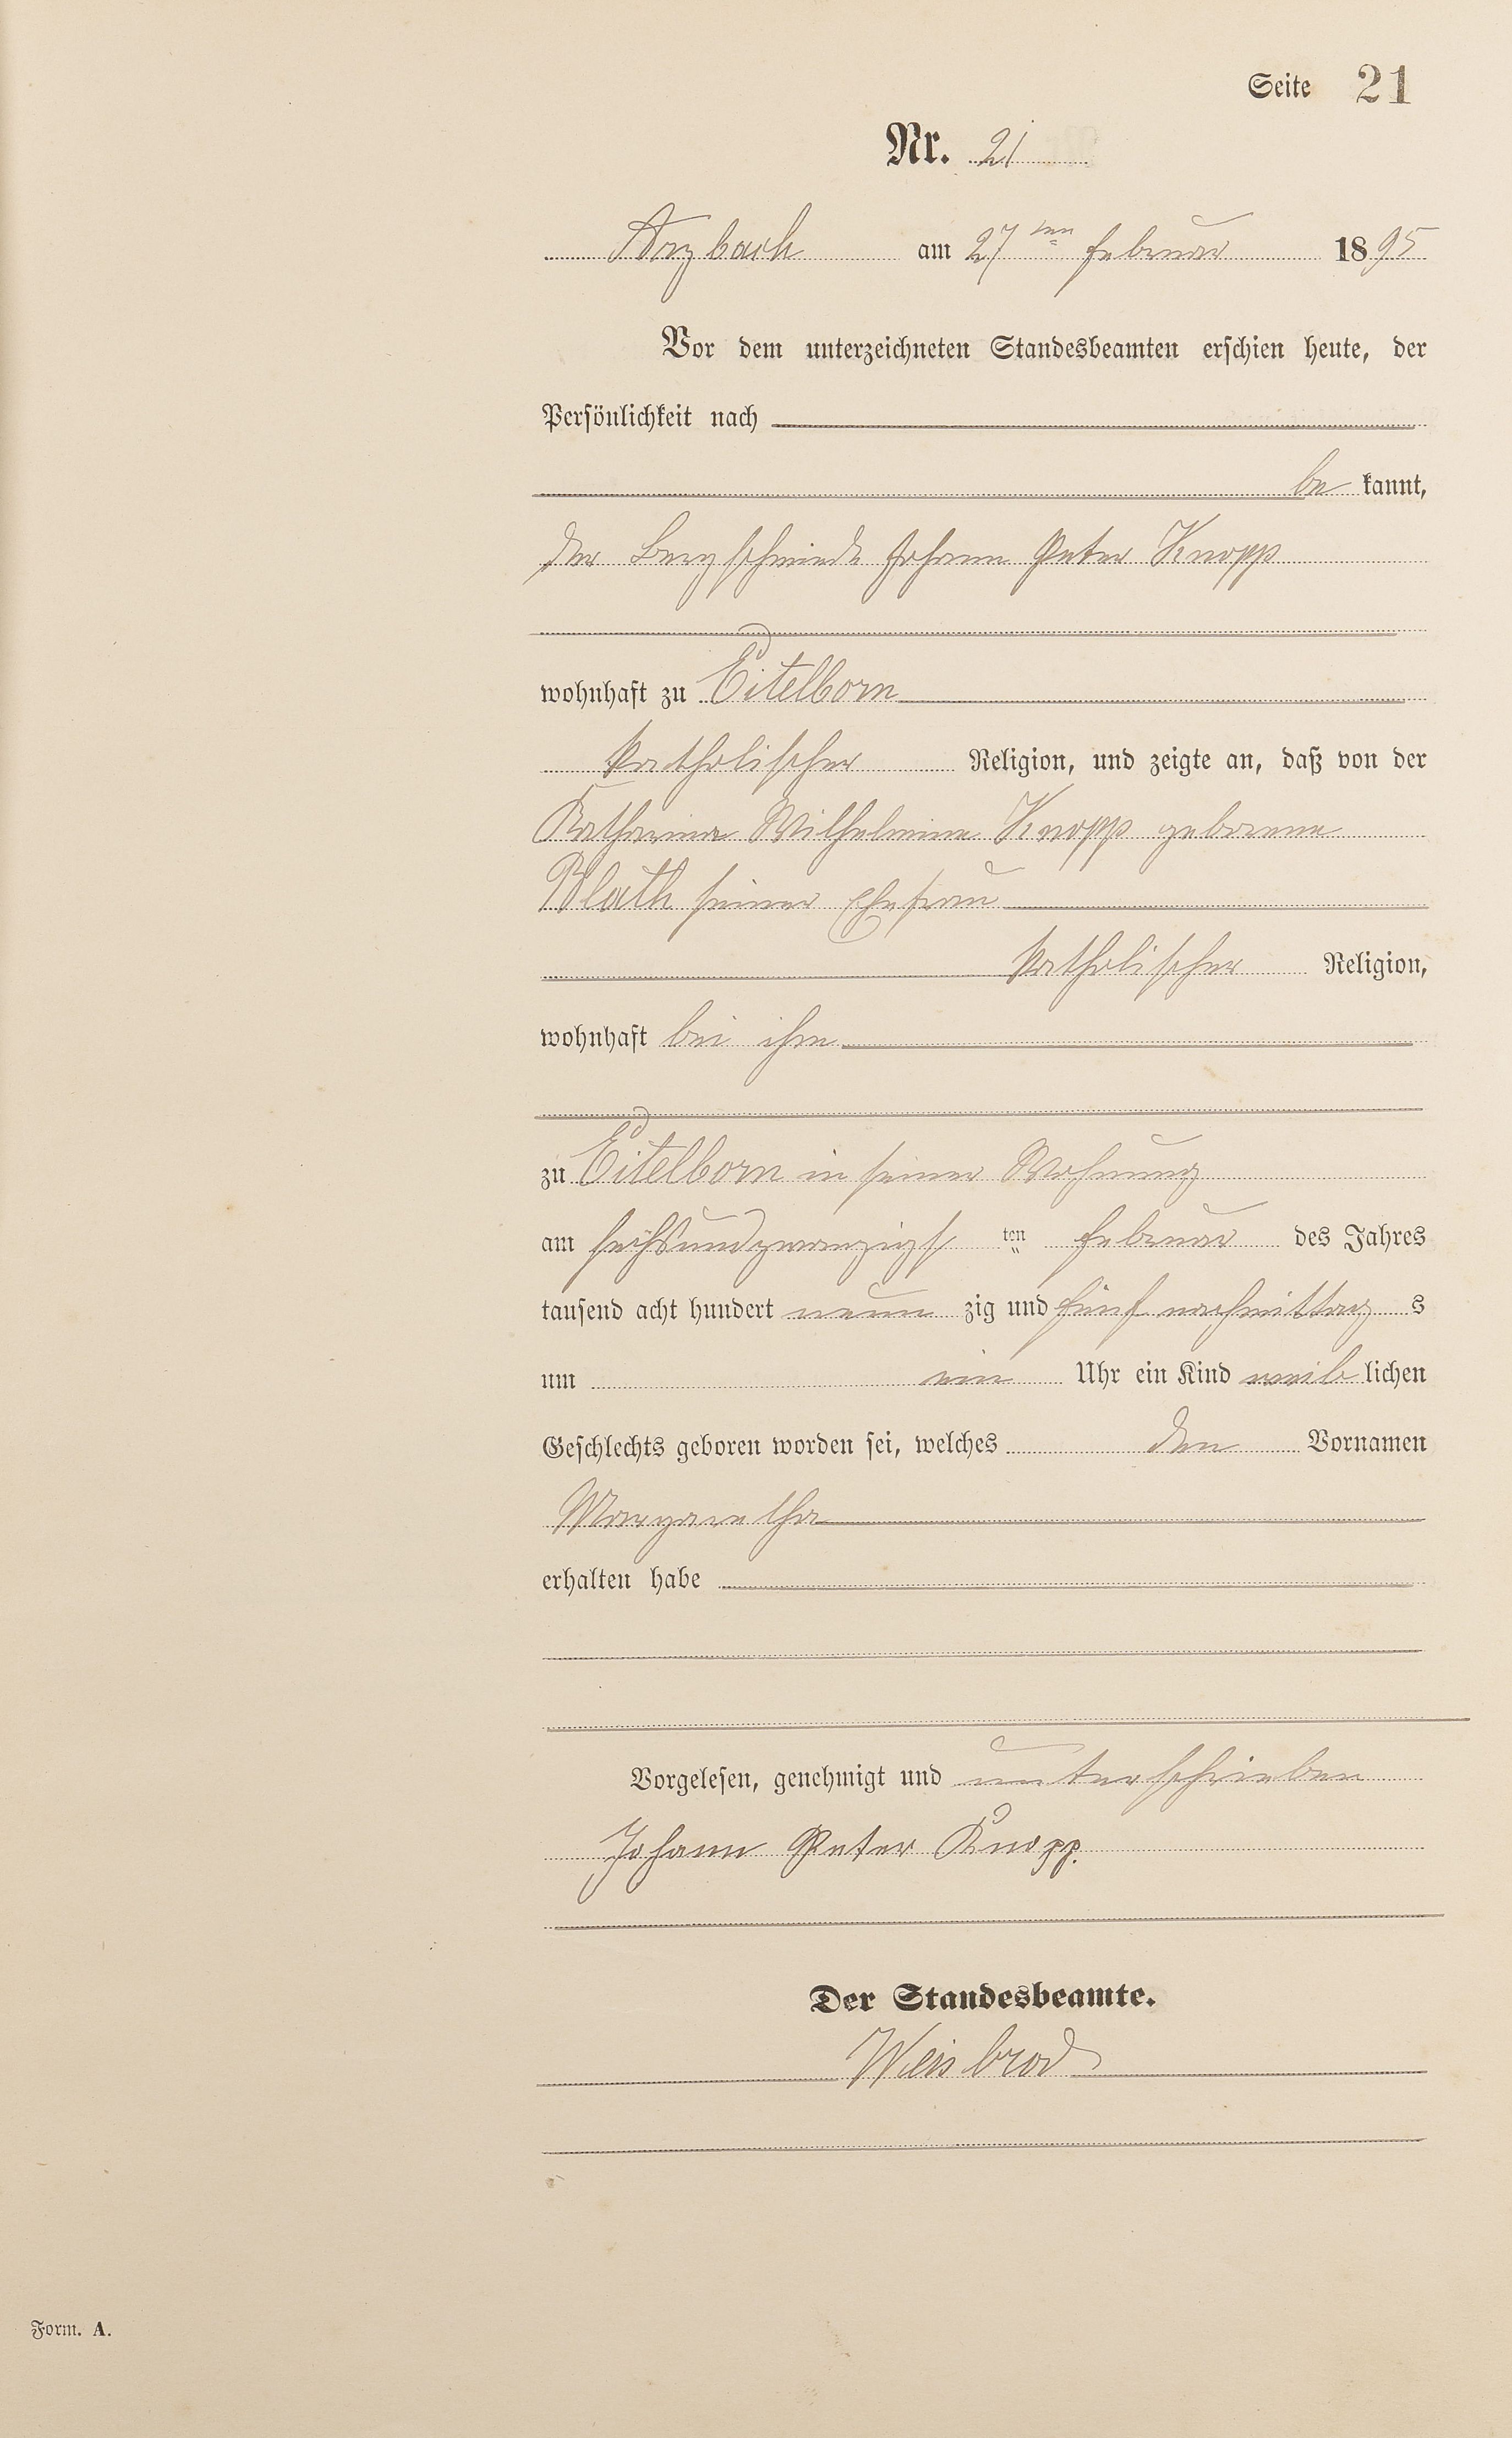 Seite 21
Nr. 21
Arzbach am 27ten Februar 1895
Vor dem unterzeichneten Standesbeamten erschien heute, der
Persönlichkeit nach
be kannt,
der Bergschmiede Johann Peter Knopp
wohnhaft zu Eitelborn
katholischer Religion, und zeigte an, daß von der
Katharina Wilhelmine Knopp geborene
Blath seiner Ehefrau
katholischer Religion,
wohnhaft bei ihm
zu Eitelborn in seiner Wohnung
am sechsundzwanzigst ten Februar des Jahres
tausend acht hundert neun zig und fünf nachmittag s
um ein Uhr ein Kind weib lichen
Geschlechts geboren worden sei, welches den Vornamen
Margaretha
erhalten habe
Vorgelesen, genehmigt und unterschrieben
Johann Peter Knopp.
Der Standesbeamte.
Weisbrod
Form. A.